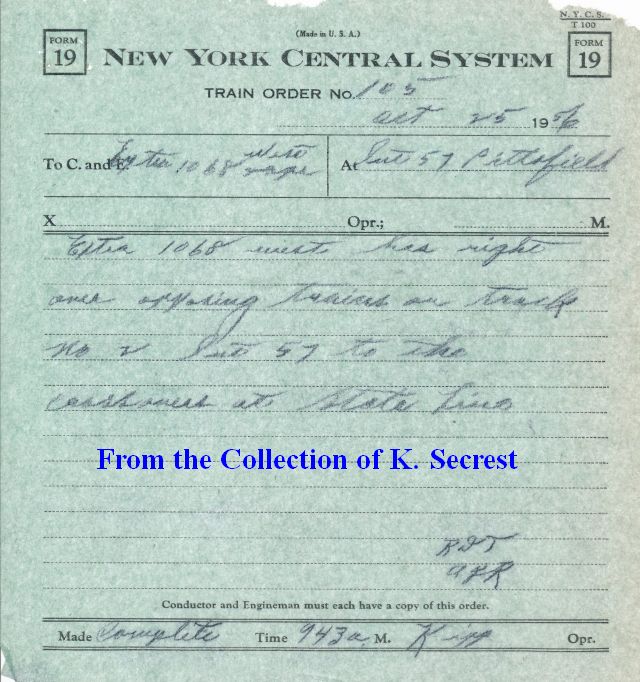 N.Y.C.S.
T 100
(Made in U. S. A.)
FORM 19
NEW YORK CENTRAL SYSTEM
FORM 19
TRAIN ORDER No. 105
Oct 25 1956
To C. and E. Extra 1068 West
At Int 57 Pittsfield
X Opr.; M.
Extra 1068 west has right
over opposing trains on track
No 2 Int 57 to the
crossovers at State Line
From the Collection of K. Secrest
Conductor and Engineman must each have a copy of this order.
Made Complete Time 943a M. Kipp Opr.